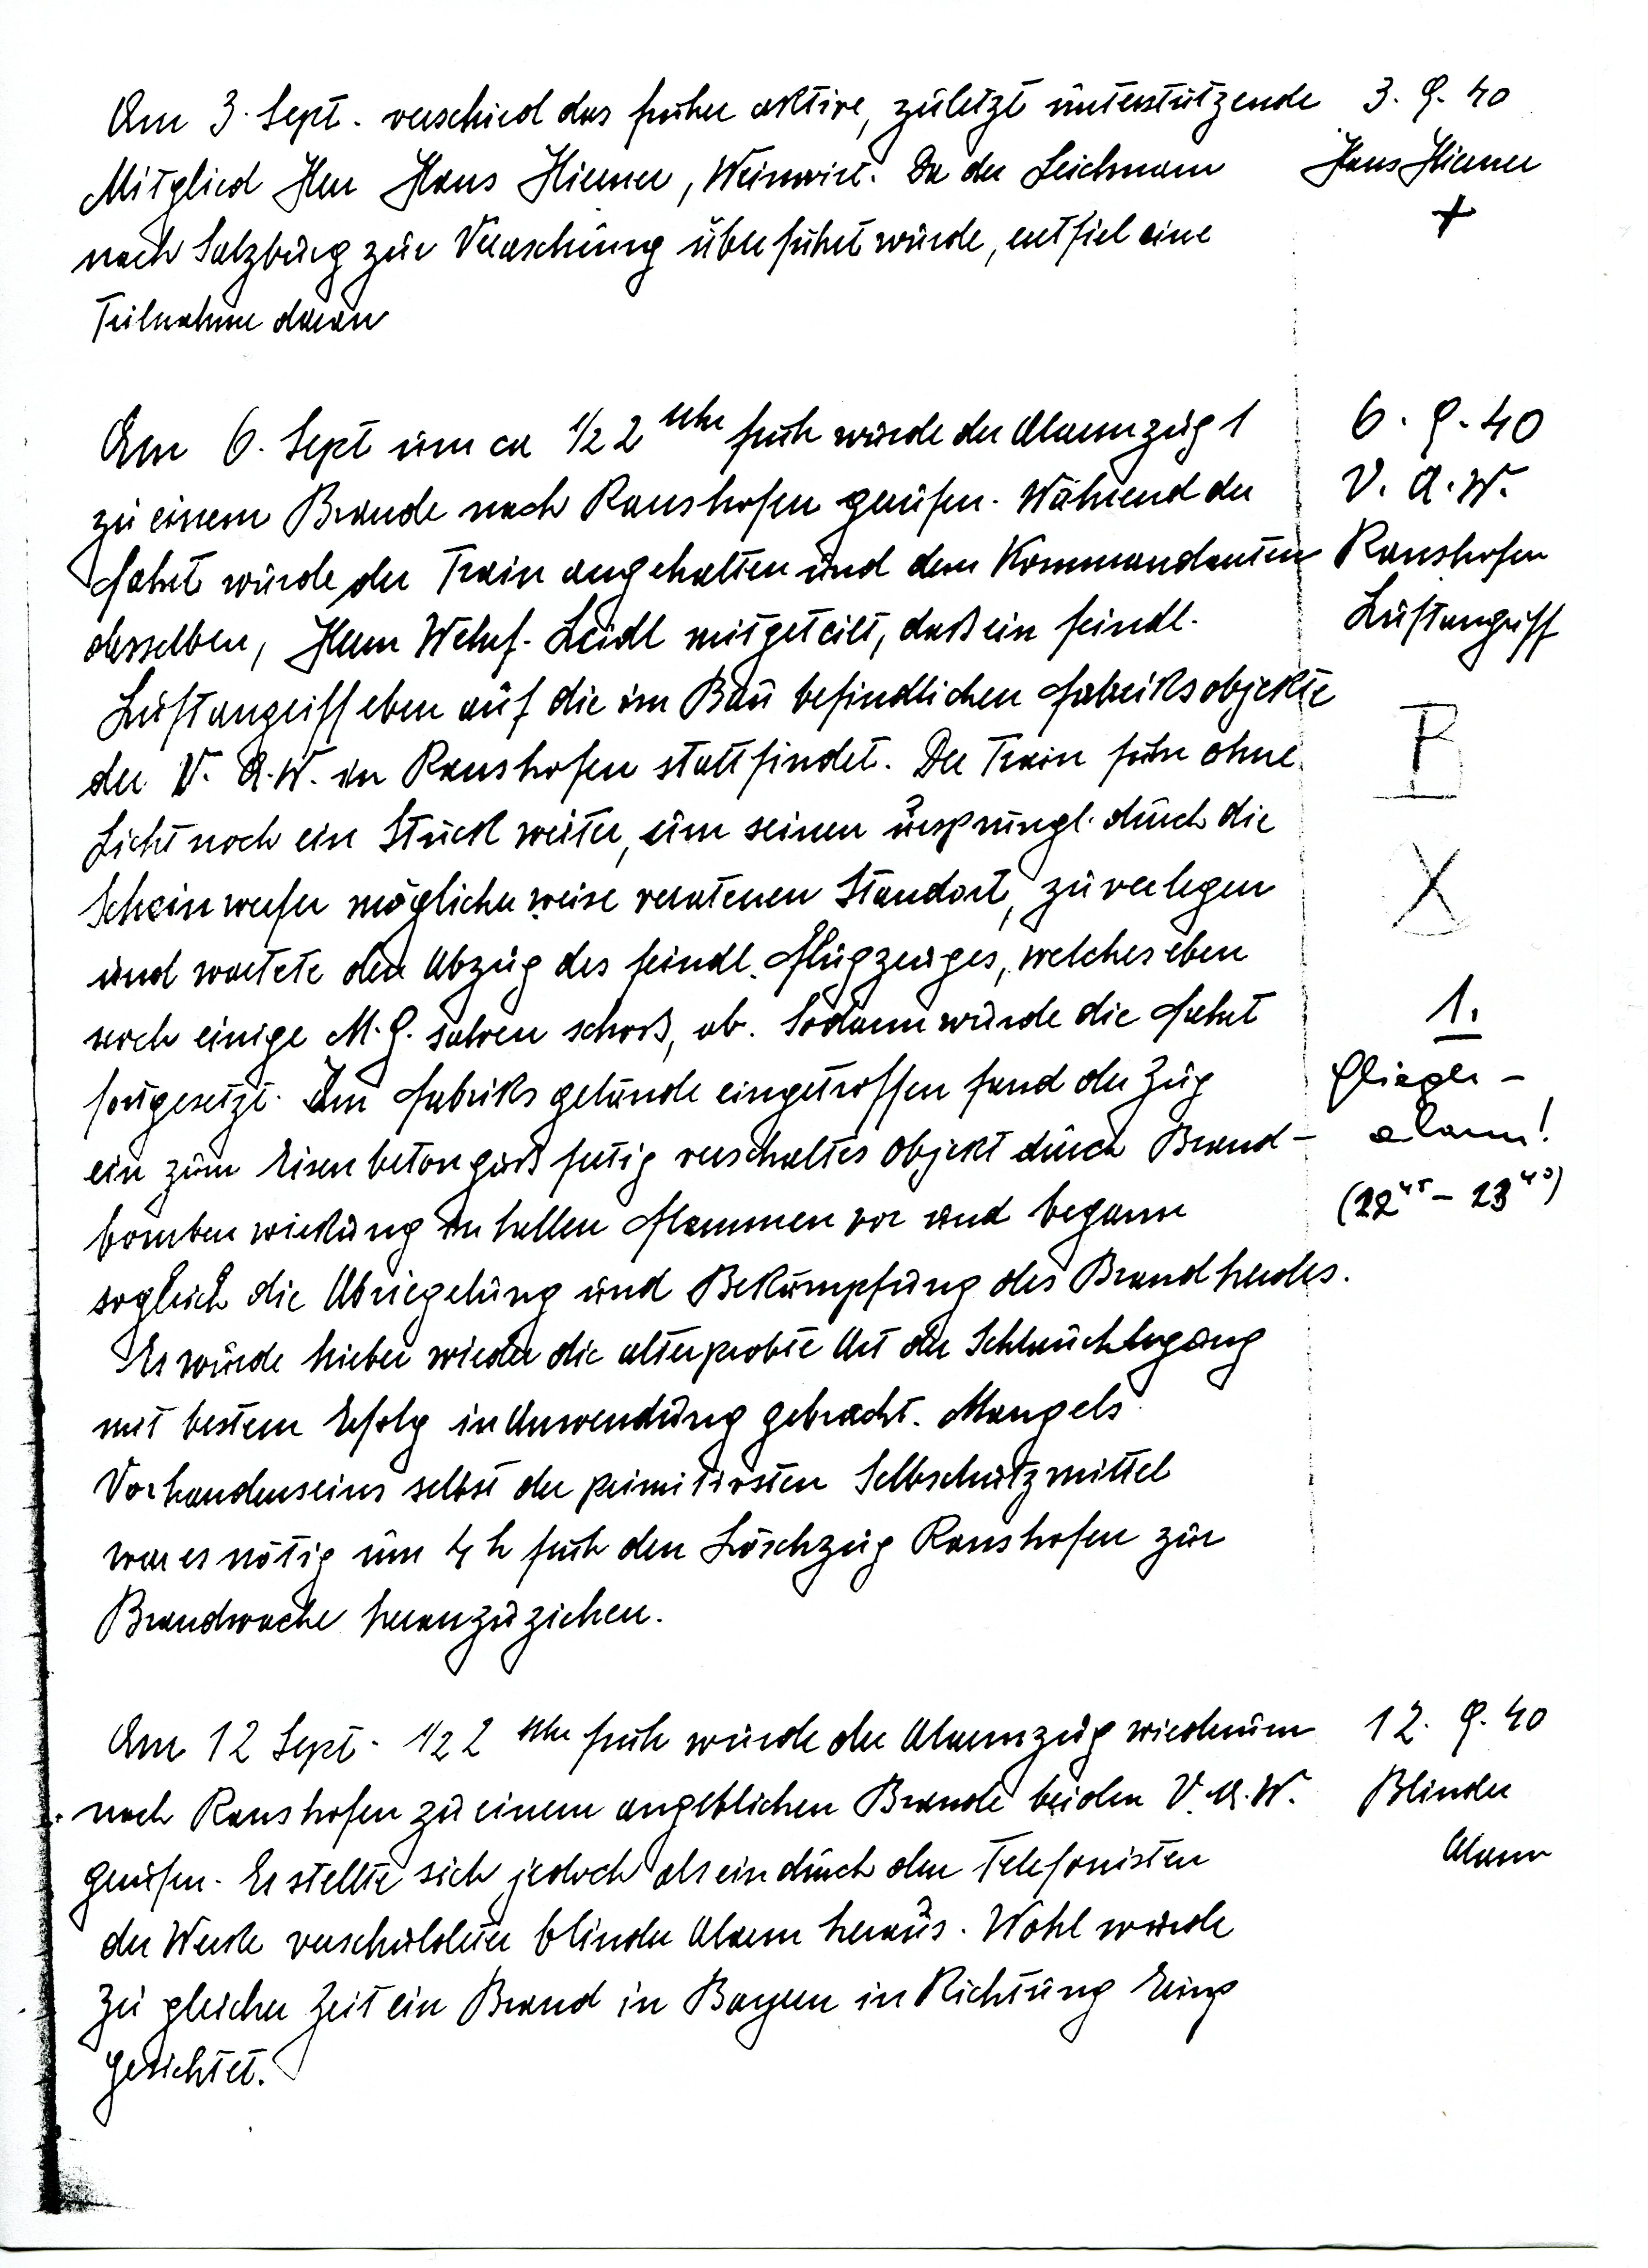 Am 3. Sept. verschied das früher aktive, zuletzt unterstützende
Mitglied Herr Hans Hiemer, Weinwirt. Da der Leichnam
nach Salzburg zur Veraschung überführt wurde, entfiel eine
Teilnahme daran
3. 9. 40
Hans Hiemer
+
Am 6. Sept um ca 1/2 2 Uhr früh wurde der Alarmzug 1
zu einem Brande nach Ranshofen gerufen. Während der
Fahrt wurde der Train angehalten und dem Kommandanten
desselben, Herrn Wehrf. Leidl mitgeteilt, daß ein feindl.
Luftangriff eben auf die im Bau befindlichen Fabriksobjekte
der V. A. W. in Ranshofen stattfindet. Der Train fuhr ohne
Licht noch ein Stück weiter, um seinen ursprüngl. durch die
Scheinwerfer möglicherweise verratenen Standort, zu verlegen
und wartete den Abzug des feindl. Flugzeuges, welches eben
noch einige M.G. salven schoß, ab. Sodann wurde die Fahrt
fortgesetzt. Im Fabriksgelände eingetroffen fand der Zug
ein zum Eisenbetonguß fertig verschaltes Objekt durch Brand-
bombenwirkung in hellen Flammen vor und begann
sogleich die Abriegelung und Bekämpfung des Brandherdes.
Es wurde hiebei wieder die alterprobte Art der Schlauchlegung
mit bestem Erfolg in Anwendung gebracht. Mangels
Vorhandenseins selbst der primitivsten Selbschutzmittel
war es nötig um 4 h früh den Löschzug Ranshofen zur
Brandwache heranzuziehen.
6. 9. 40
V. A. W.
Ranshofen
Luftangriff
B
X
1.
Flieger-
alarm!
(22 45 - 23 40)
Am 12 Sept. 1/2 2 Uhr früh wurde der Alarmzug wiederum
nach Ranshofen zu einem angeblichen Brande bei den V. A. W.
gerufen. Er stellte sich jedoch als ein durch den Telefonisten
der Werke verschuldeter blinder Alarm heraus. Wohl wurde
zu gleicher Zeit ein Brand in Bayern in Richtung Ering
gesichtet.
12. 9. 40
Blinder
Alarm